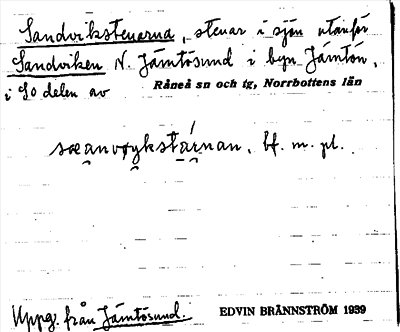 Sandvikstenarna, stenar i sjön utanför
Sandviken N. Jämtösund i byn Jämtön,
i SO delen av Råneå sn och tg, Norrbottens län
sæanvøykstárnan, bf. m. pl.
Uppg. från Jämtösund. EDVIN BRÄNNSTRÖM 1939